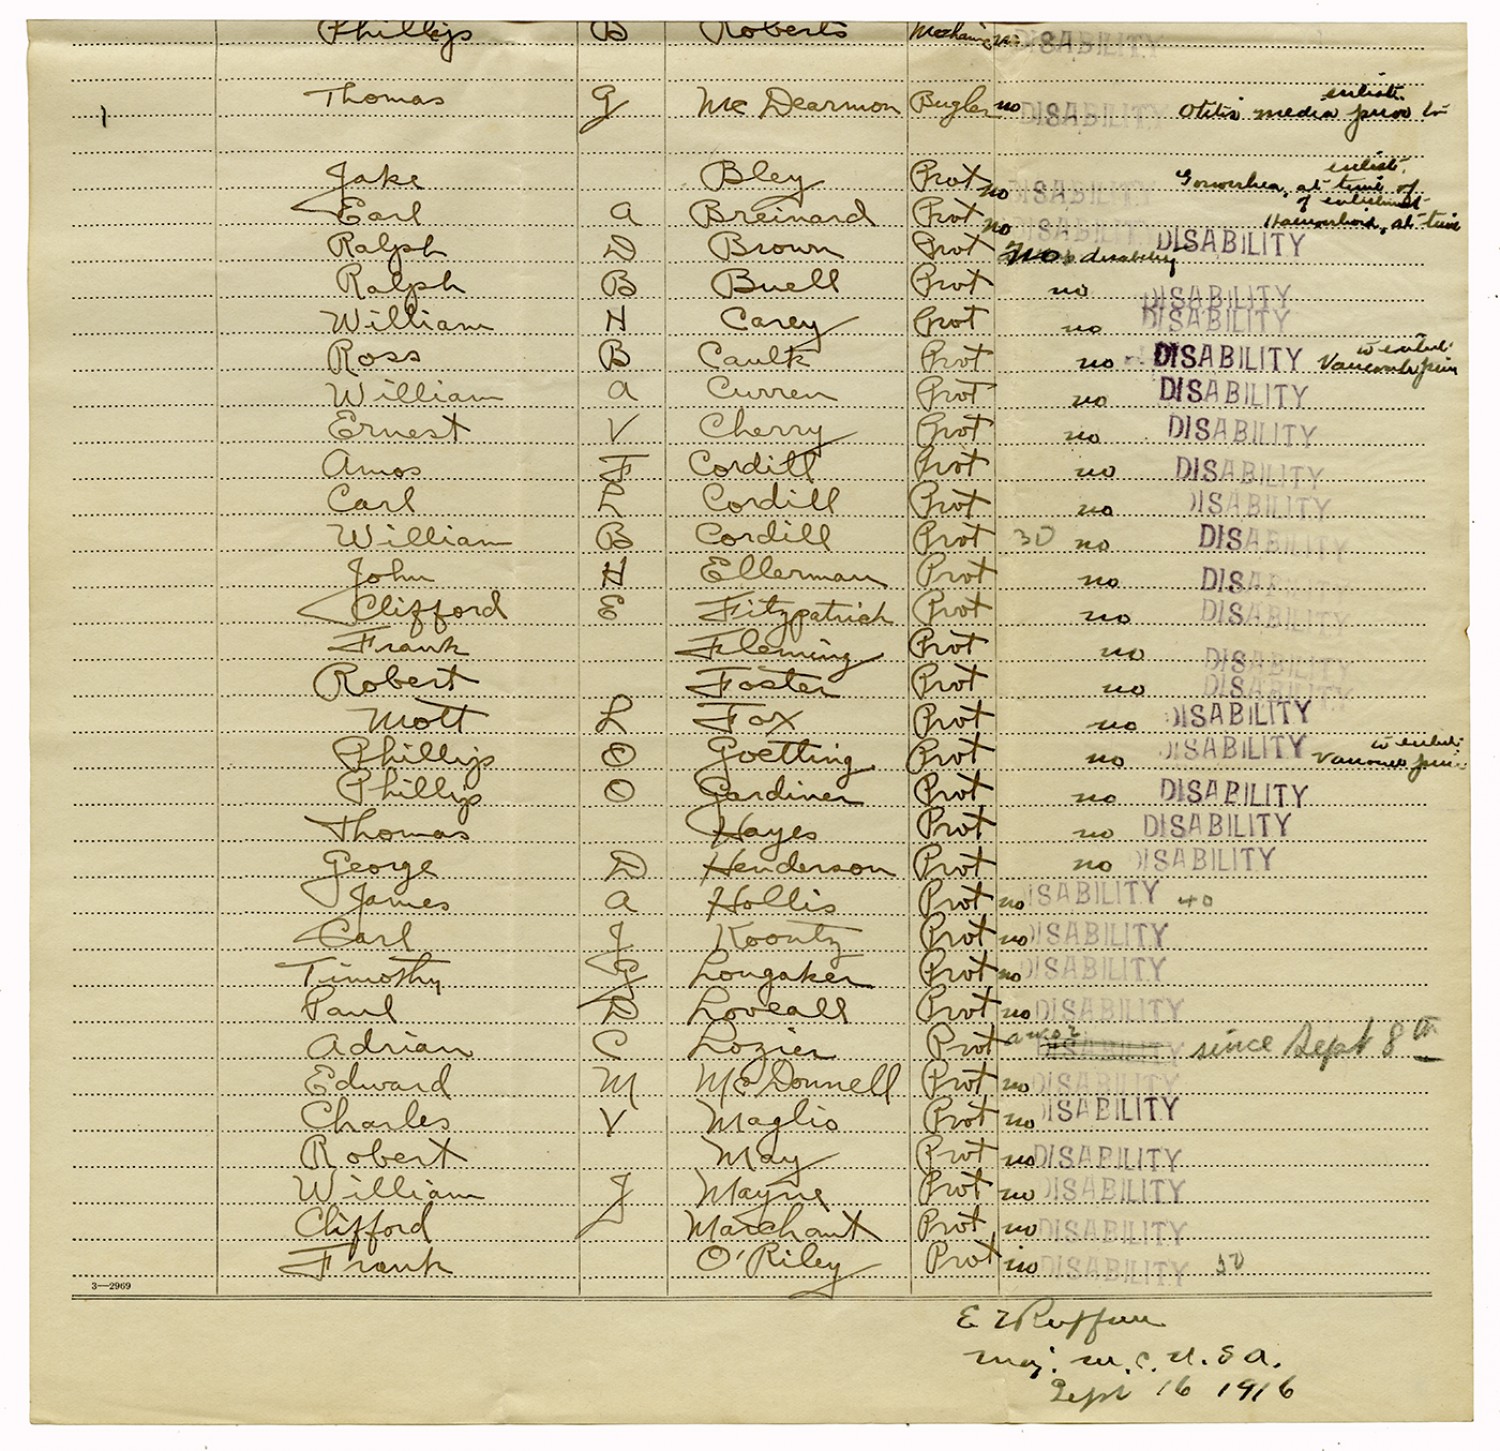 Phillip B Roberts Mechanic no DISABILITY
enlist.
Thomas G McDearmon Bugler no DISABILITY Otitis media prior to
1
enlist.
Jake Bley Prvt no DISABILITY Gonorrhea, at time of
of enlistment
Earl A Breinard Prvt no DISABILITY Haemorrhoid, at time
Ralph D Brown Prvt no disability DISABILITY
Ralph B Buell Prvt no DISABILITY
William H Carey Prvt no DISABILITY
to enlist.
Ross B Caulk Prvt no DISABILITY prior
William A Curren Prvt no DISABILITY
Ernest V Cherry Prvt no DISABILITY
Amos F Cordill Prvt no DISABILITY
Carl L Cordill Prvt no DISABILITY
William B Cordill Prvt 30 no DISABILITY
John H Ellerman Prvt no DISABILITY
Clifford E Fitzpatrick Prvt no DISABILITY
Frank Fleming Prvt no DISABILITY
Robert Foster Prvt no DISABILITY
Mott L Fox Prvt no DISABILITY
to enlist.
Phillip O Goetting Prvt no DISABILITY prior
Phillip O Gardiner Prvt no DISABILITY
Thomas Hayes Prvt no DISABILITY
George D Henderson Prvt no DISABILITY
James A Hollis Prvt no DISABILITY 40
Carl J Koontz Prvt no DISABILITY
Timothy G Longaker Prvt no DISABILITY
Paul D Loveall Prvt no DISABILITY
Adrian C Lozier Prvt DISABILITY since Sept 8th
Edward M McDonnell Prvt no DISABILITY
Charles V Maglio Prvt no DISABILITY
Robert May Prvt no DISABILITY
William J Mayne Prvt no DISABILITY
Clifford Marchant Prvt no DISABILITY
Frank O'Riley Prvt no DISABILITY 50
3—2969
Maj. M.C. U.S.A.
Sept 16 1916